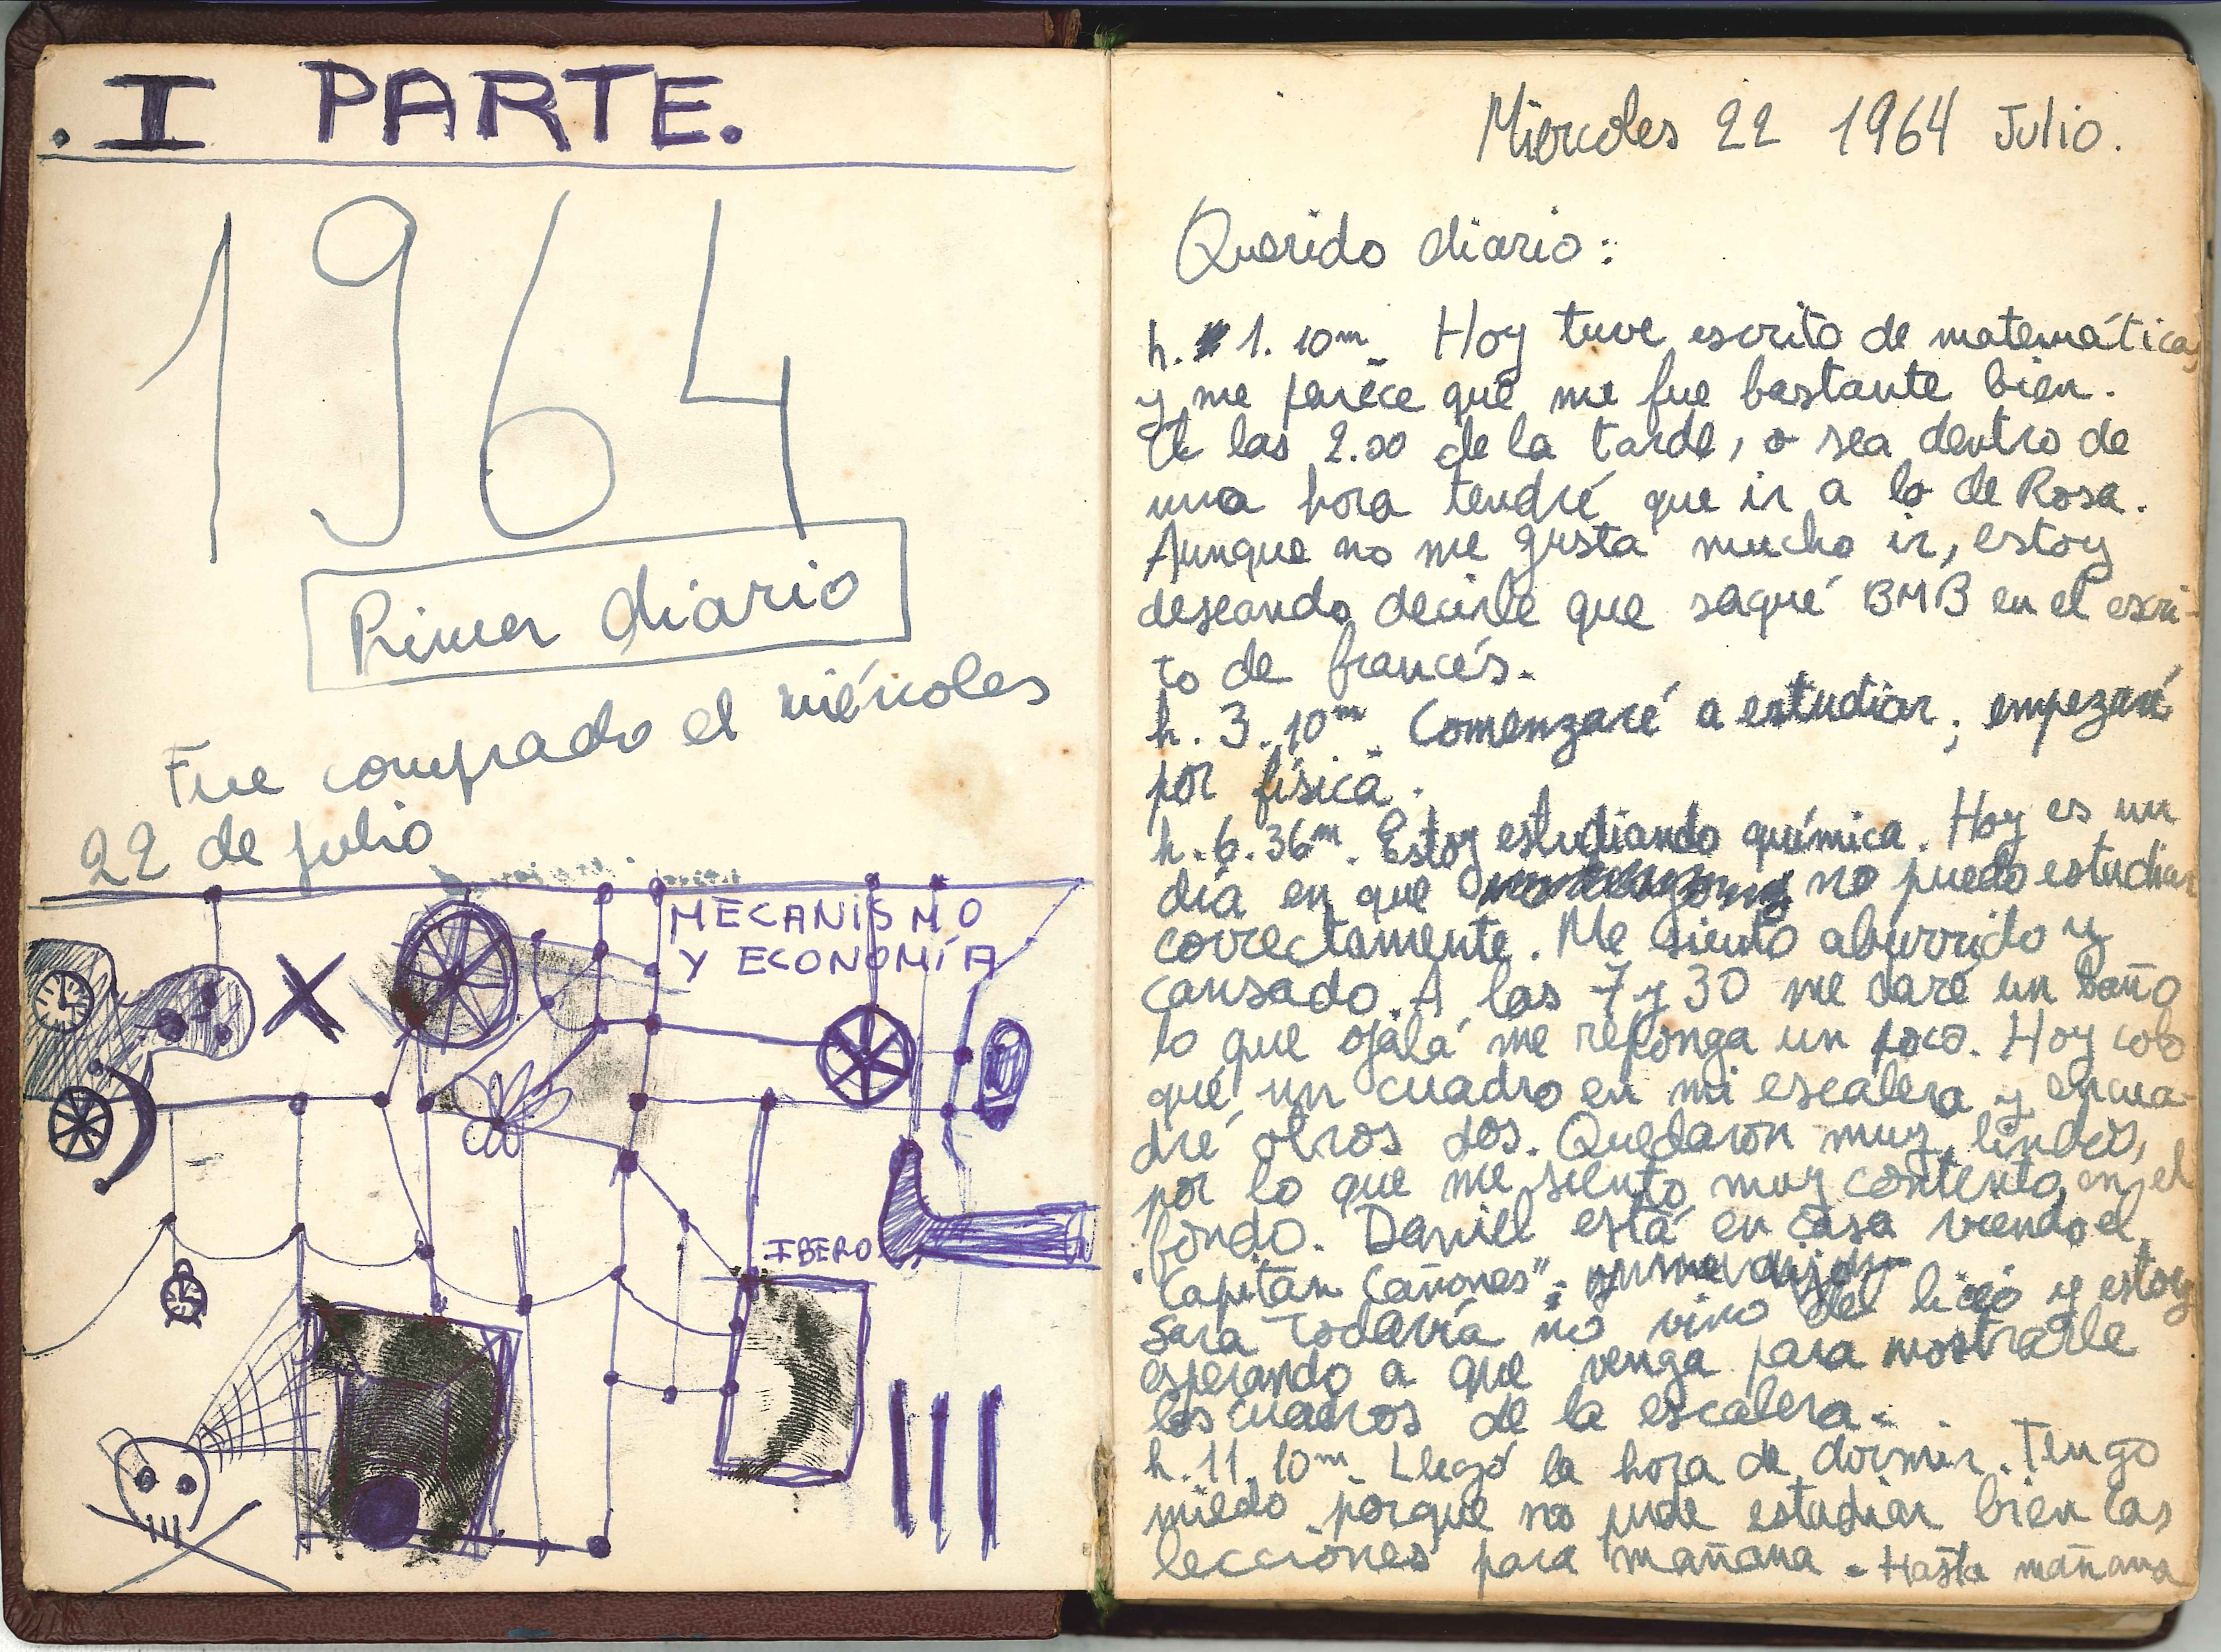 . I PARTE.
1964
Primer diario
Fue comprado el miércoles
22 de julio
MECANISMO
Y ECONOMÍA
IBERO
Miercoles 22 1964 Julio.
Querido diario:
h. 1. 10m. Hoy tuve escrito de matemática,
y me parece que me fue bastante bien.
A las 2.30 de la tarde, o sea dentro de
una hora tendré que ir a lo de Rosa.
Aunque no me gusta mucho ir, estoy
deseando decirle que saqué BMB en el escri-
to de francés.
h. 3. 10m. Comenzaré a estudiar; empezaré
por física.
h. 6. 36m. Estoy estudiando química. Hoy es un
día en que no puedo estudiar
correctamente. Me siento aburrido y
cansado. A las 7 y 30 me daré un baño
lo que ojalá me reponga un poco. Hoy colo
qué un cuadro en mi escalera y encua-
dré otros dos. Quedaron muy lindos,
por lo que me siento muy contento en el
fondo. Daniel está en casa viendo el
"Capitán Cañones";
Sara todavía no vino del liceo y estoy
esperando a que venga para mostrarle
los cuadros de la escalera.
h. 11. 10m. Llegó la hora de dormir. Tengo
miedo porque no pude estudiar bien las
lecciones para mañana. Hasta mañana